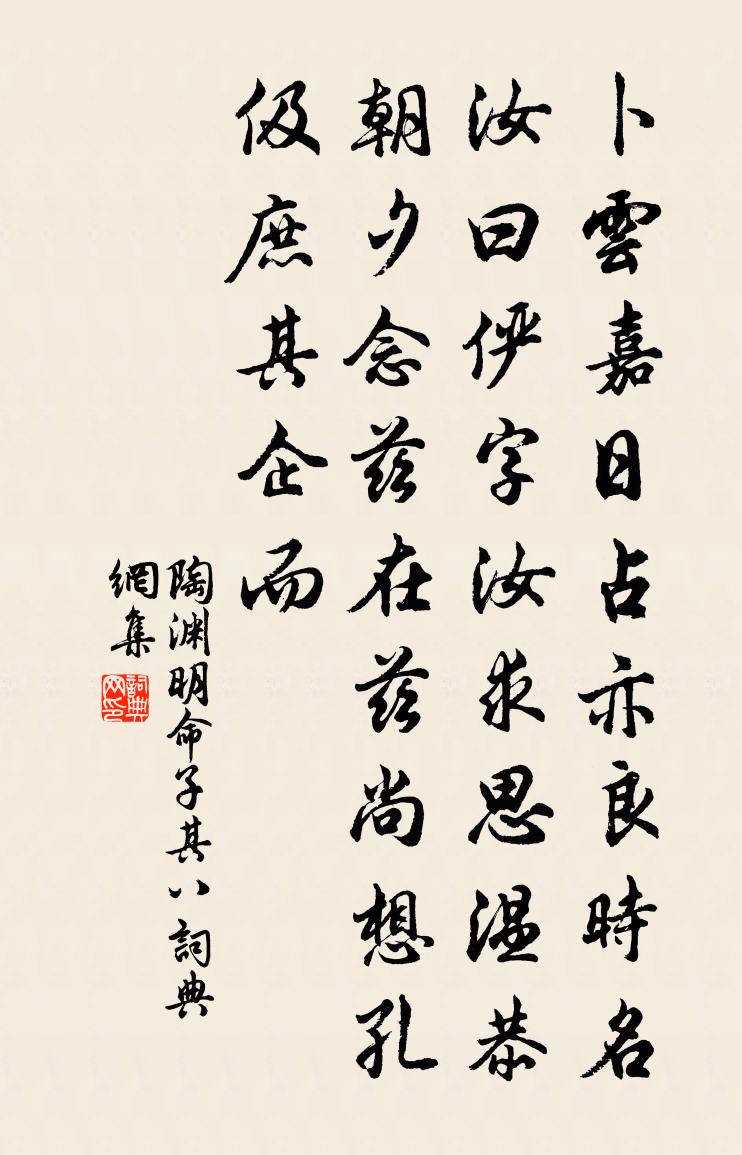 卜雲嘉日占亦良時名
汝曰俨字汝求思温恭
朝夕念兹在兹尚想孔
伋庶其企而
陶渊明命子其八詞典
網集
詞典网印